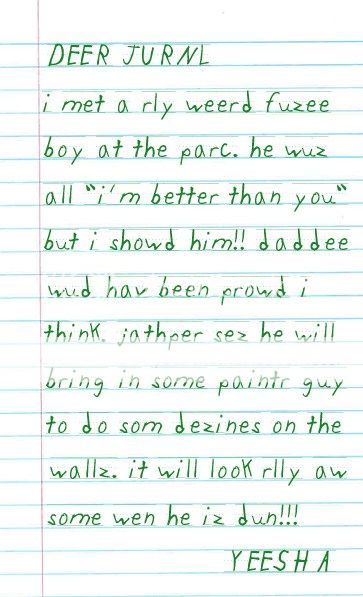 DEER JURNL
i met a rly weerd fuzee
boy at the parc. he wuz
all "i'm better than you"
but i showd him!! daddee
wud hav been prowd i
think. jathper sez he will
bring in some paintr guy
to do som dezines on the
wallz. it will look rlly aw
some wen he iz dun!!!
YEESHA